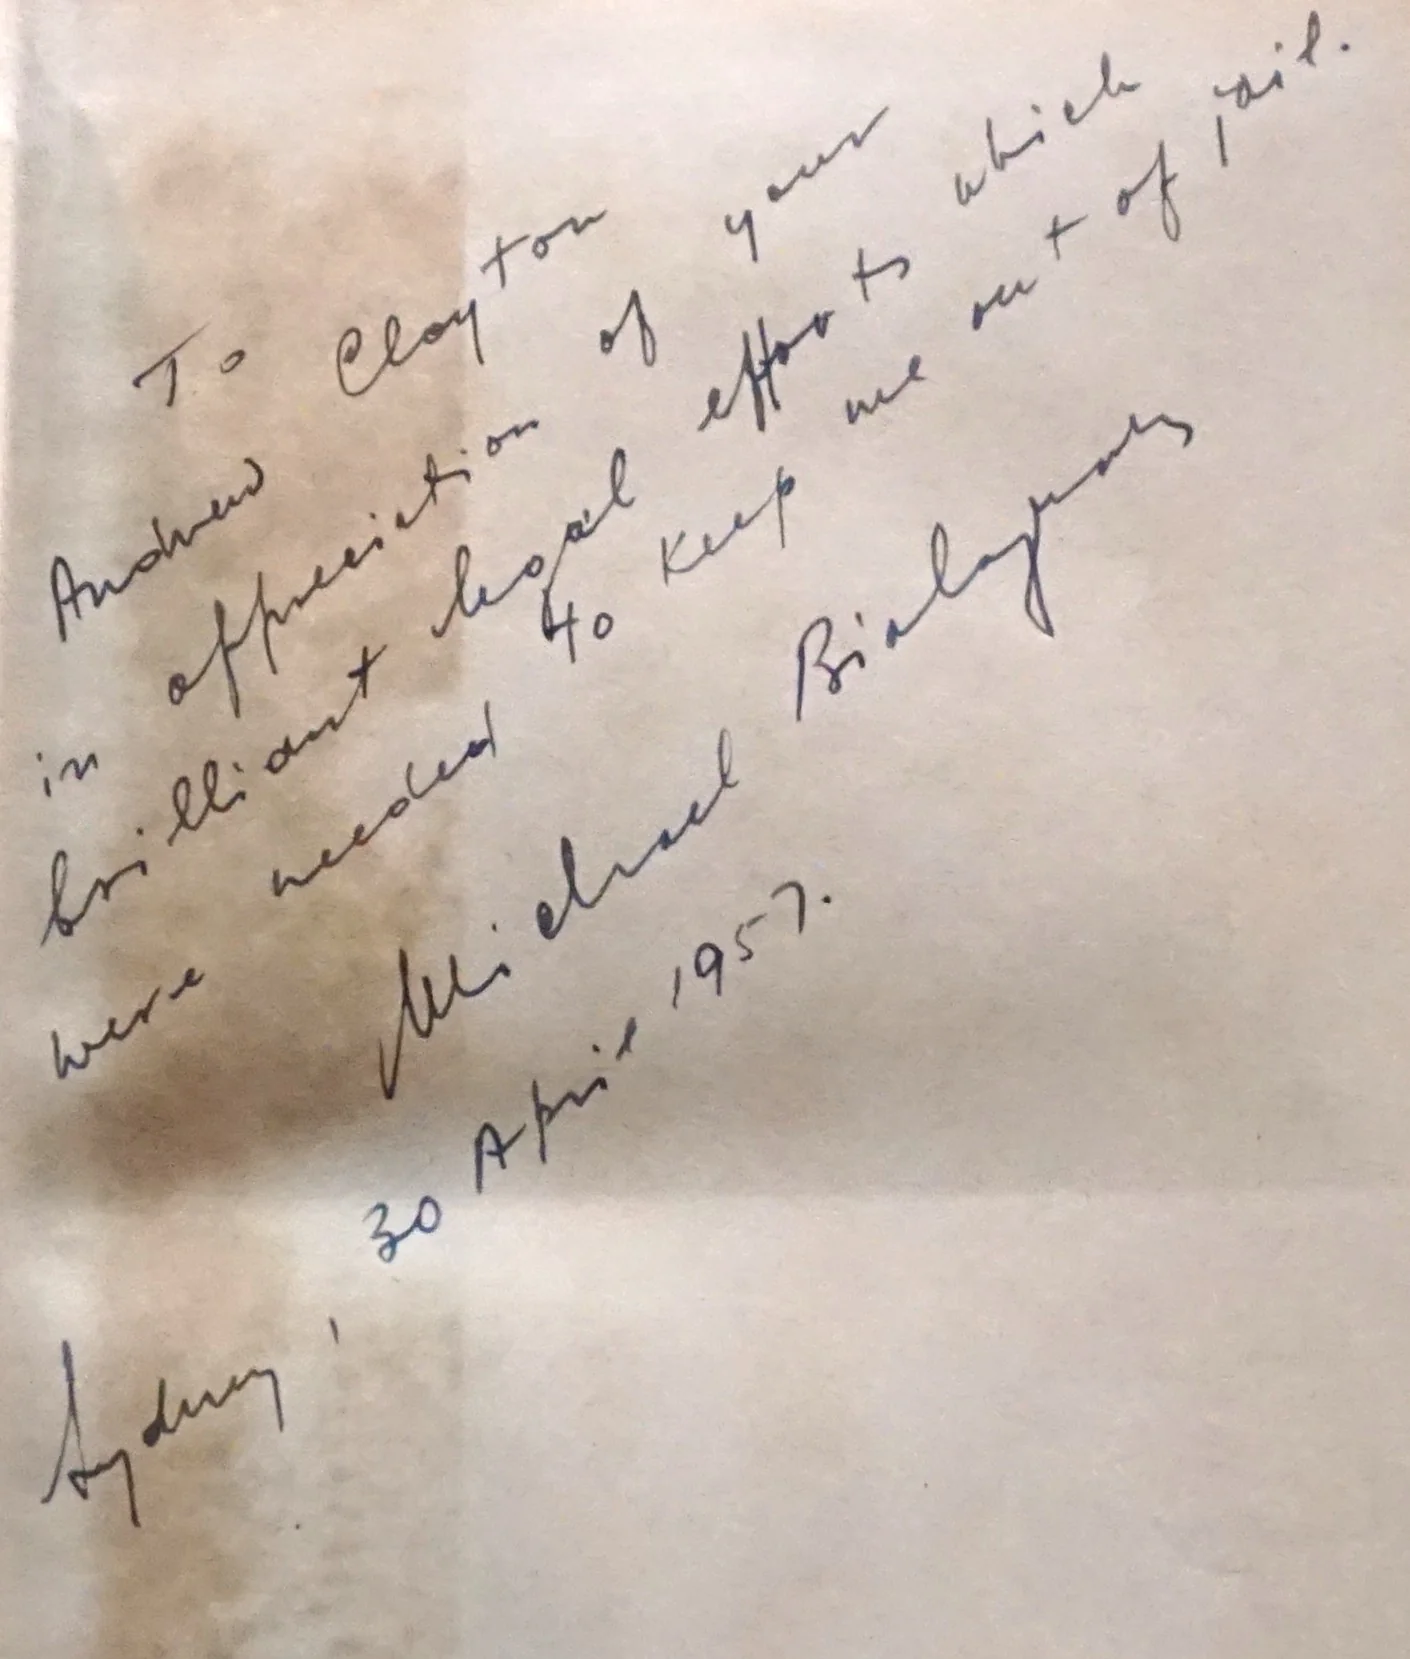 To Clayton
Andrew
in appreciation of your
brilliant legal efforts which
were needed to keep me out of jail.
Michael Bialoguski
Sydney, 30 April 1957.